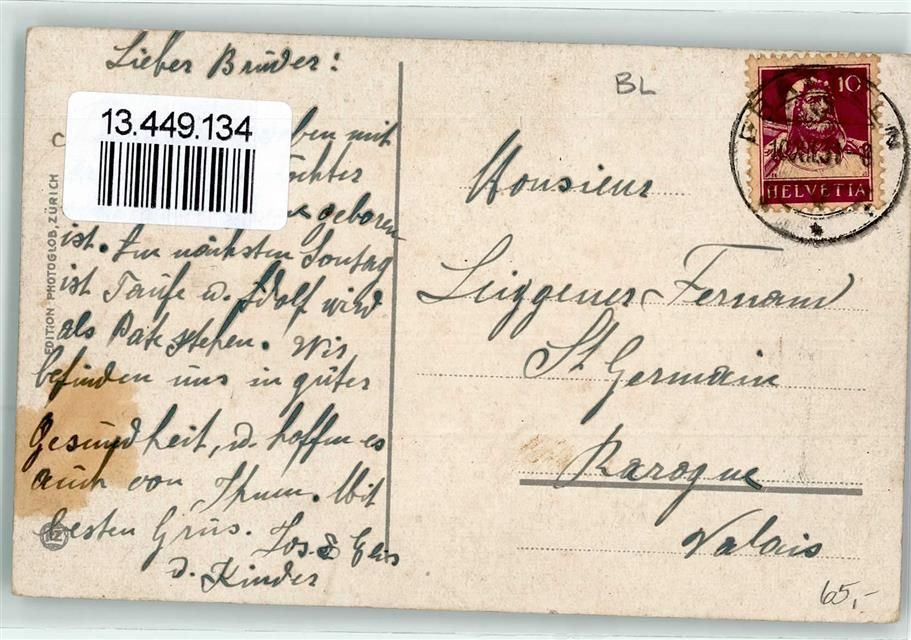 Lieber Bruder:
13.449.134
mit
geboren
ist. Am nächsten Sontag
ist Taufe u. Adolf wird
als Pate stehen. Wir
befinden uns in guter
Gesundheit, u. hoffen es
auch von Ihnen. Mit
besten Grüs. Jos. &
u. Kinder
EDITION PHOTOGLOB, ZÜRICH
BL
10
HELVETIA
Monsieur
Luggener Fernand
St Germain
Rarogne
Valais
65,-